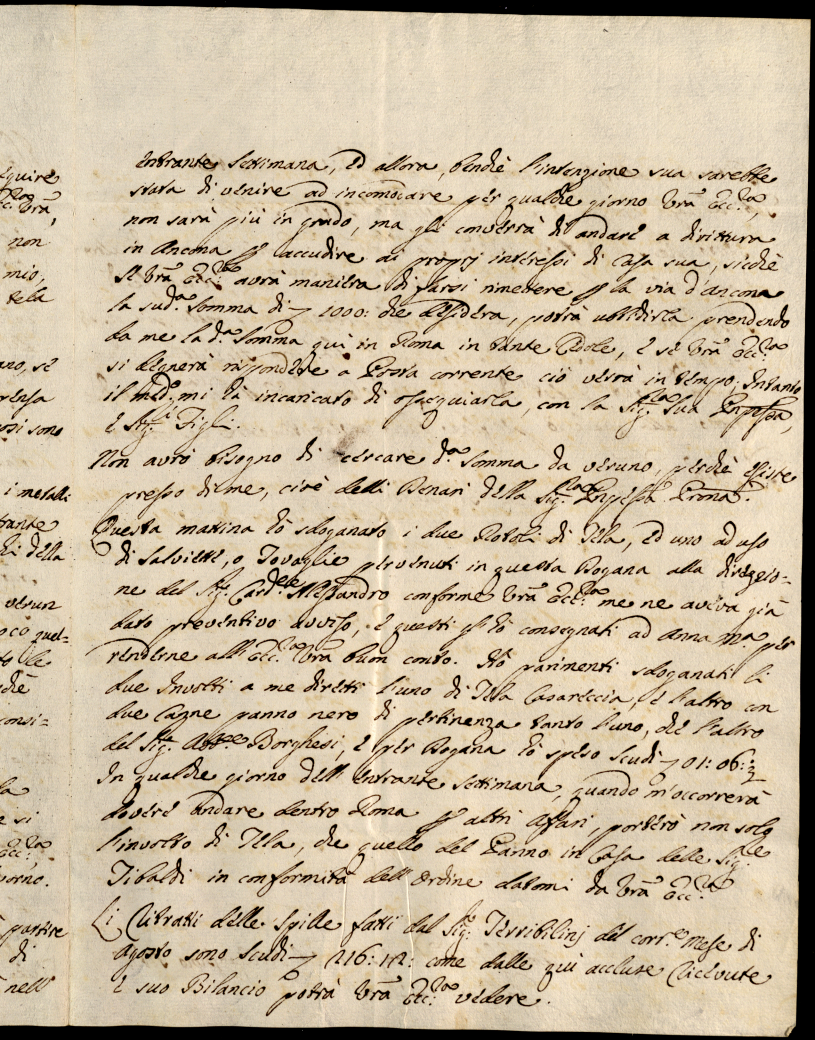 quire
Ecc.za Vrã,
non
mio,
tela
ano, se
rensa
osi sono
i metalli
tante
hi della
verun
oco quel=
to le
chè
consi=
la
e si
Ecc.za,
giorno.
partire
di
nell'
entrante Settimana, ed allora, benchè l'intenzione sua sarebbe
stata di venire ad incomodare per qualche giorno Vrã Ecc.za,
non sarà più in grado, ma gli converrà di andare a dirittura
in Ancona p accudire ai proprj interessi di Casa sua, sicchè
se Vrã Ecc.za avrà maniera di farsi rimettere p la via d'Ancona
la sud.a somma di 1000: che desidera, potrà ubbidirla prendendo
da me la d.a somma quì in Roma in tante Cedole, e se Vrã Ecc.za
si degnerà rispondere a Posta corrente ciò verrà in tempo; Intanto
il med.o mi hà incaricato di ossequiarla, con la Sig.ra Sua
e Sig.i Figli.
Non avrò bisogno di cercare d.a somma da veruno, perchè esiste
presso di me, cioè delli Denari della Sig.ra
Questa mattina hò sdoganato i due Rotoli di Tela, ed uno ad uso
di Salviette, o Tovaglie pervenuti in questa Dogana alla direzzio=
ne del Sig.r Card.le Alessandro conforme Vrã Ecc.za me ne aveva già
dato preventivo avviso, e questi gl'hò consegnati ad Anna M.a per
renderne all'Ecc.za Vrã buon conto. Hò parimenti sdoganati li
due Involti a me diretti l'uno di Tela Casareccia, e l'altro con
due Canne panno nero di pertinenza tanto l'uno, che l'altro
del Sig.re Borghesi, e per Dogana hò speso Scudi 01: 06:
In qualche giorno dell'entrante settimana, quando m'occorrerà
dovere andare dentro Roma p altri affari, porterò non solo
l'involto di Tela, che quello del Panno in Casa delle Sig.re
Tibaldi in conformità dell'Ordine datomi da Vrã Ecc.za
Li Ritratti delle Spille fatti dal Sig.r Terribilinj del corr.e mese di
Agosto sono Scudi 216: come dalle quì accluse Ricevute
e suo Bilancio potrà Vrã Ecc.za vedere.